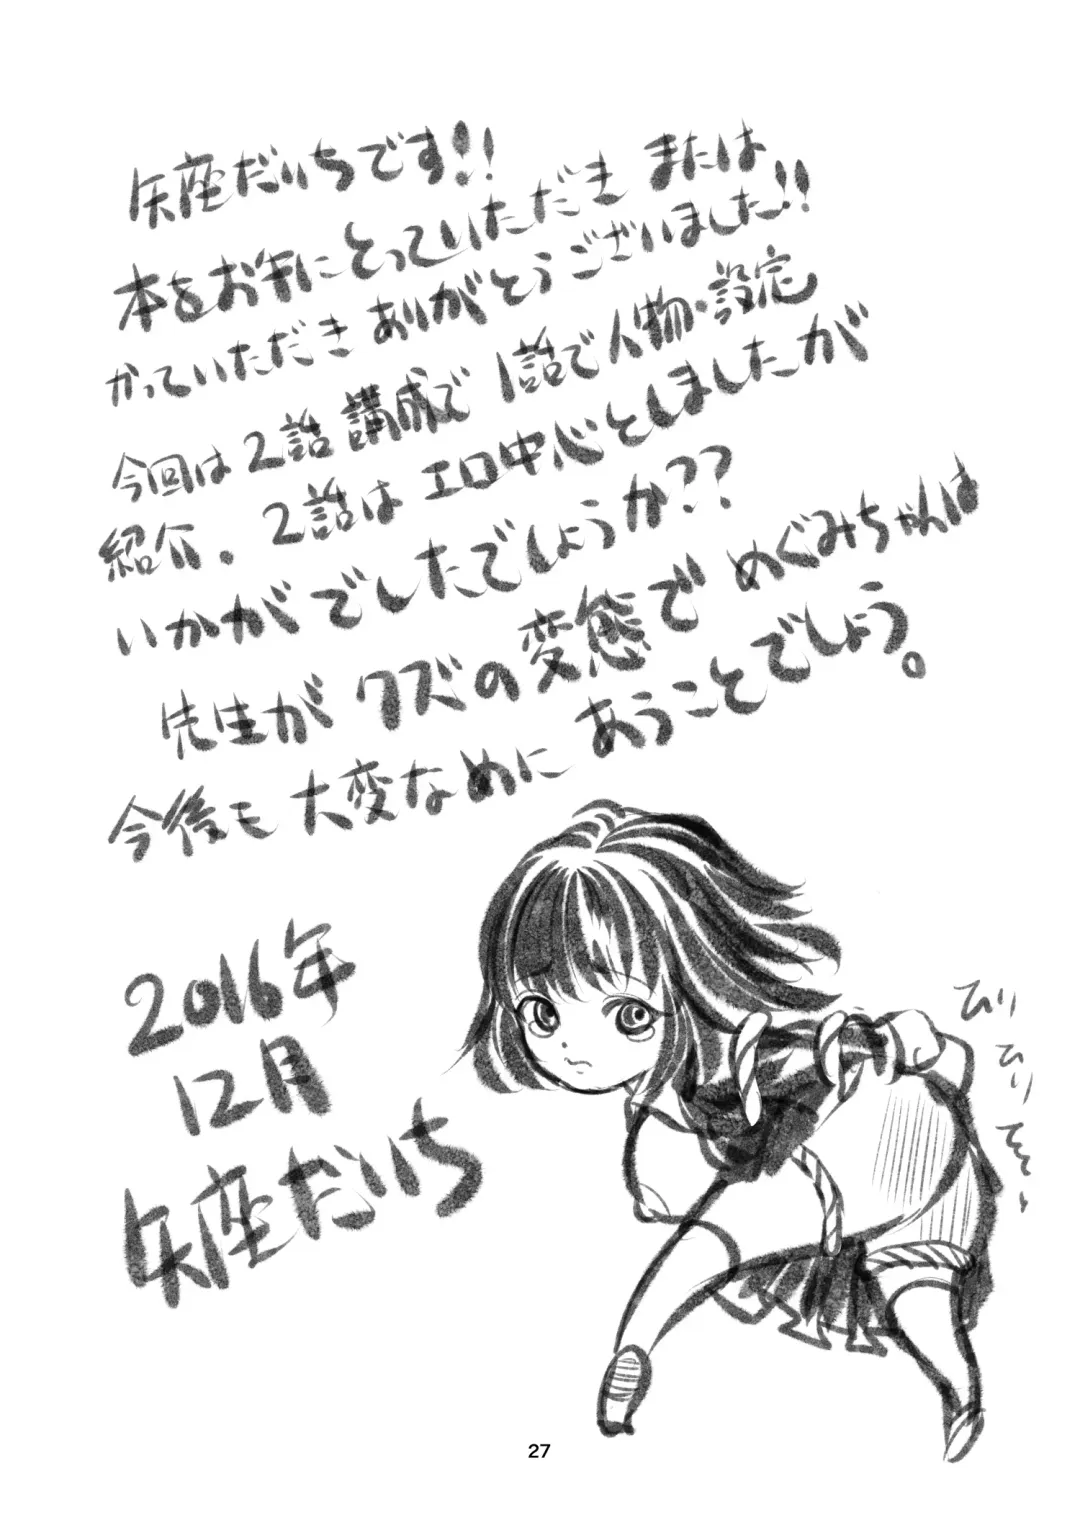 矢座だいちです!!
本をお手にとっていただき または
かっていただき ありがとうございました!!
今回は2話講成で 1話で人物・設定
紹介。2話は エロ中心としましたが
いかがでしたでしょうか??
先生が クズの変態で めぐみちゃんは
今後も 大変なめに あうことでしょう。
2016年
12月
矢座だいち
ひり
ひり
27